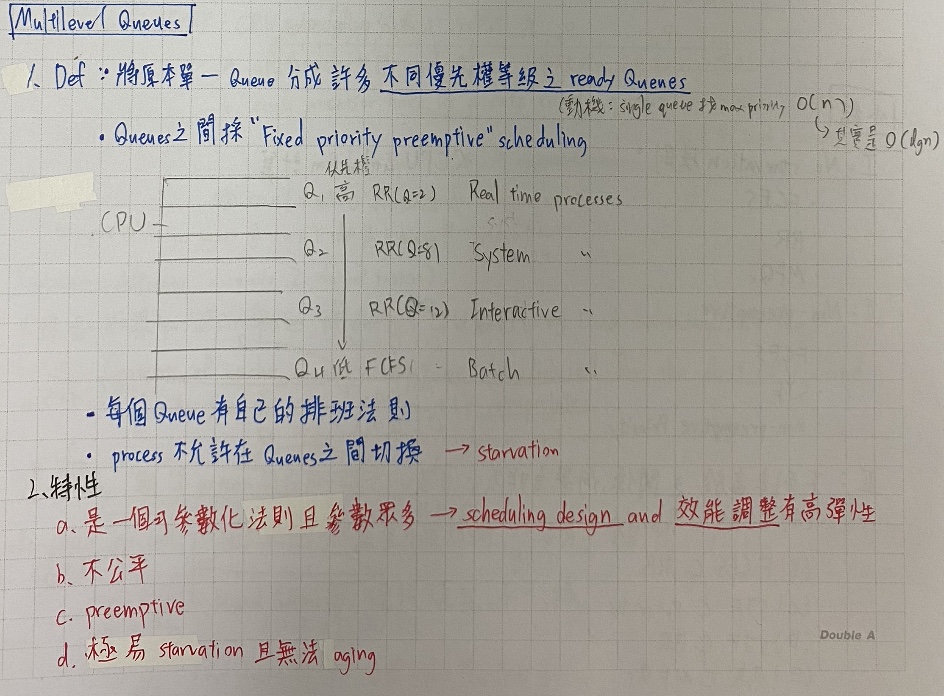 Multilevel Queues
1. Def：將原本單一 Queue 分成許多 不同優先權等級之 ready Queues
(動機：single queue 找 max priority O(n))
↳ 其實是 O(lgn)
• Queues之間採 "Fixed priority preemptive" scheduling
優先權
Q1 高 RR(Q=2) Real time processes
CPU
Q2 RR(Q=8) System 〃
Q3 RR(Q=12) Interactive 〃
Q4 低 FCFS Batch 〃
• 每個Queue有自己的排班法則
• process 不允許在 Queues之間切換 → starvation
2、特性
a、是一個可參數化法則且參數眾多 → scheduling design and 效能調整有高彈性
b、不公平
c. preemptive
d. 極易 starvation 且無法 aging
Double A